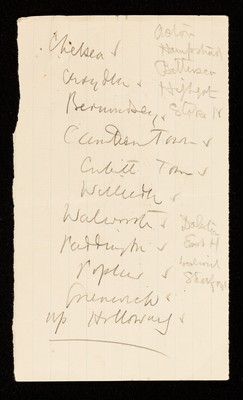 Chelsea
Croydon
Bermondsey
Camden Town
Cubitt Town
Willesden
Walworth
Paddington
Poplar
Greenwich
up Holloway
Acton
Hampstead
Battersea
Highgate
Stoke N
Dalston
East H
Stratford